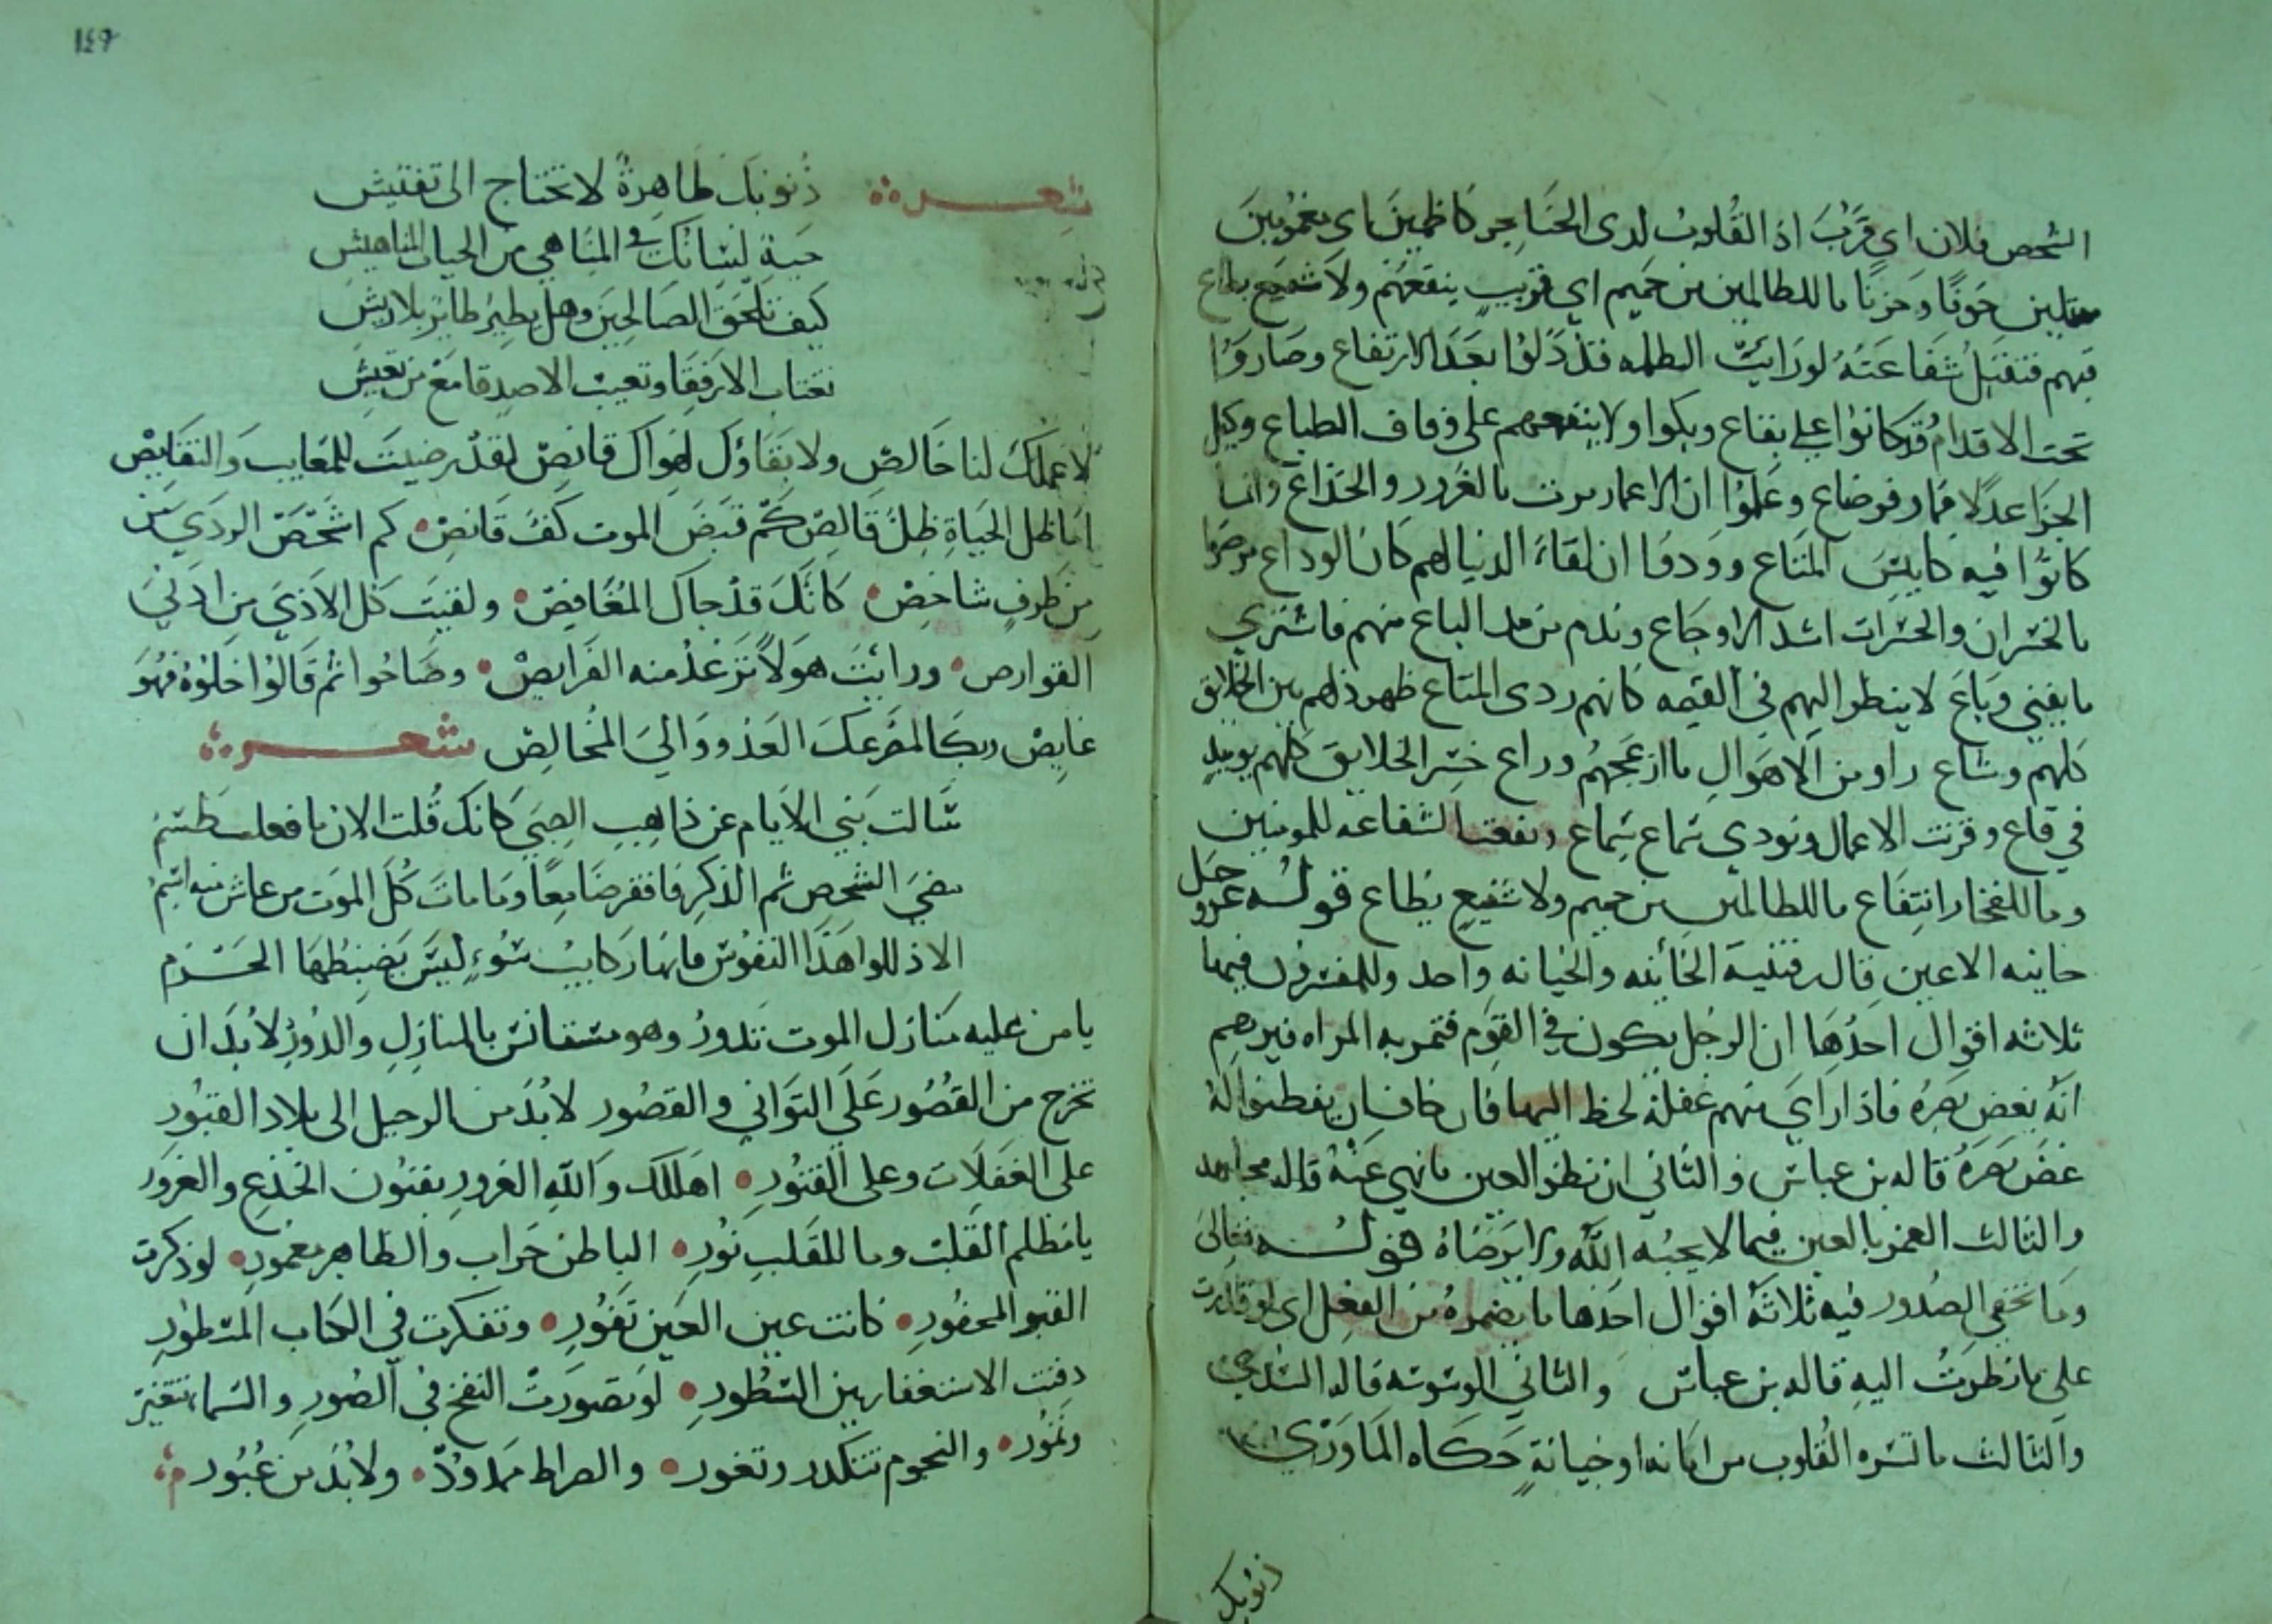 الشخص فلان اي قَرُبَ اذ القُلوبُ لدى الحَناجر كاظمينَ اي مغمُومينَ
ممتلين خوفًا وَحزنًا ما للظالمين من حَميم اي قريبٍ ينفعهُم ولا شفيع يطاع
فيهم فتقبل شَفاعَتهُ لورَايتَ الظلمه قد ذَلوُا بعَدَ الارتفاع وصَاروُا
تحت الاقدام وقَد كانوُا على بقاع وبكوا ولا ينفعهم على وفاف الطباع وكيل
الجزاَ عدلًا فما وفو ضاع وعَلموُا ان الاعمار مرت بالغرور والخداع وانما
كانوُا فيه كا بيسَ المتَاع وودوا ان لقاءَ الدنيا لهم كان الوداع مرضوا
بالخسران والحسرات اشد الاوجَاع وندم من مد الباع منهم فاشتري
ما يفني وَبَاعَ لا ينظر اليهم في القيمه كانهم ردى المتاع ظهر ذلهم بين الخلايق
كلهم وشاع راو من الاهوالِ ما ازعجهُم وراع حشر الخلايق كلهم يوميذٍ
في قاع وقرنت الاعمال ونودي سماع سماع ونفعت الشفاعه للمومنين
وما للفخار انتِفَاع ما للظالمين من حميم ولا شفيعٍ يطاع قوله عز وجل
خاينه الاعين قال بن قتيبة الخَائنه والخيانه واحد وللمفسرون فيها
ثلاثه اقوال احدُهَا ان الرجُل يكون في القوم فتمر به المراه فيريهم
انهُ يغض بَصرهُ فاذا رايَ منهم غفلة لحظ اليها فان خاف ان يفطنوا لهُ
غضَ بَصرَهُ قاله بن عباس والثاني ان نظر العين ما نهي عنهُ قاله مجاهد
والثالث الغمز بالعين فيما لا يحبُه الله ولا يرَضَاهُ قوله تعالىَ
وما تخفي الصُدور فيه ثلاثة اقوال احدَها ما يضمرهُ من الفعل اي لو قدرت
على ما نظرتُ اليهِ قاله بن عباس والثاني الوسوسه قاله السُدي
والثالث ما تسره القُلوب من امانه او خيانةٍ حَكاه المَاوَرْدي
ذنوبك
١٤٩
شعـــره
ذُنوبُكَ ظَاهِرةٌ لا تحتاج الى تفتيش
حيةِ لسَانُكَ في المنَاهي من الحيات المناهيش
كيف تلحَق الصَالحِينَ وهل يطيرُ طايرٌ بلا ريش
تغتاب الارَفِقَا وتعيب الاصدِقا مَعْ من تعيش
لا عملكَ لنا خَالصٌ ولا بَقَاؤك لهَواكَ قانصٌ لقدْ رضيتَ للمعَايب وَالنقَايِصْ
اما ظل الحيَاةِ ظِلٌ قَالِصٌ كمْ قبَضَ الموت كفَ قَانصٍ كم اشخَصَ الردَي
مِن طرفٍ شاخصْ كانَكَ قدْ جاكَ المُغَافِصْ ولقيتَ كل الاذيَ من ادنيَ
القوارص ورايتَ هولاً تُرعَدُ منه الفَرايصْ وصَاحُوا ثمُ قالوُا خلوُهُ فهَوَ
غايِصٌ ربحَا لمصَرعكَ العَدو ووَاليَ المُخالِصْ شعـــره
سَالت بَني الايَام عن ذاهِبِ الصِبَي كانكَ قُلت الان ما فعلت طَسمُ
مضيَ الشَخص ثم الذكر فانقرضَا معًا ومَا ماتَ كُلَ الموَت من عاش منه اسمُ
الا ذللوا هذا النفوسَ فانها ركايبُ سُوءٍ ليسَ يضبطهَا الحَـــزم
يا من عليه مَنازل الموت تَدورُ وهو مستانس بالمنازلِ والدُورِ لا بُدَ ان
تخرج من القُصُور عَلَي التوَاني والقصُور لا بُدَ من الرحيل الى بلاد القبُور
على الغفَلَات وعلى الفتوُرِ اهلَكك وَاللهِ الغرور بفنوُن الخدَعِ والغروَر
يا مظلم القَلب وما للقَلبِ نُورِ الباطن خَراب والظاهر معمورِ لو ذكرت
القبر المحفوُر كانت عين العَين تَفُور وتفكرت في الكتاب المسَطورِ
دفت الاستغفار بين السُطورِ لو تصَورتْ النفخ في الصُورِ والسَما تتغيرَ
وتمُور والنجوم تتكدر وتغور والصراط ممدودٌ ولا بُدَ من عُبُور